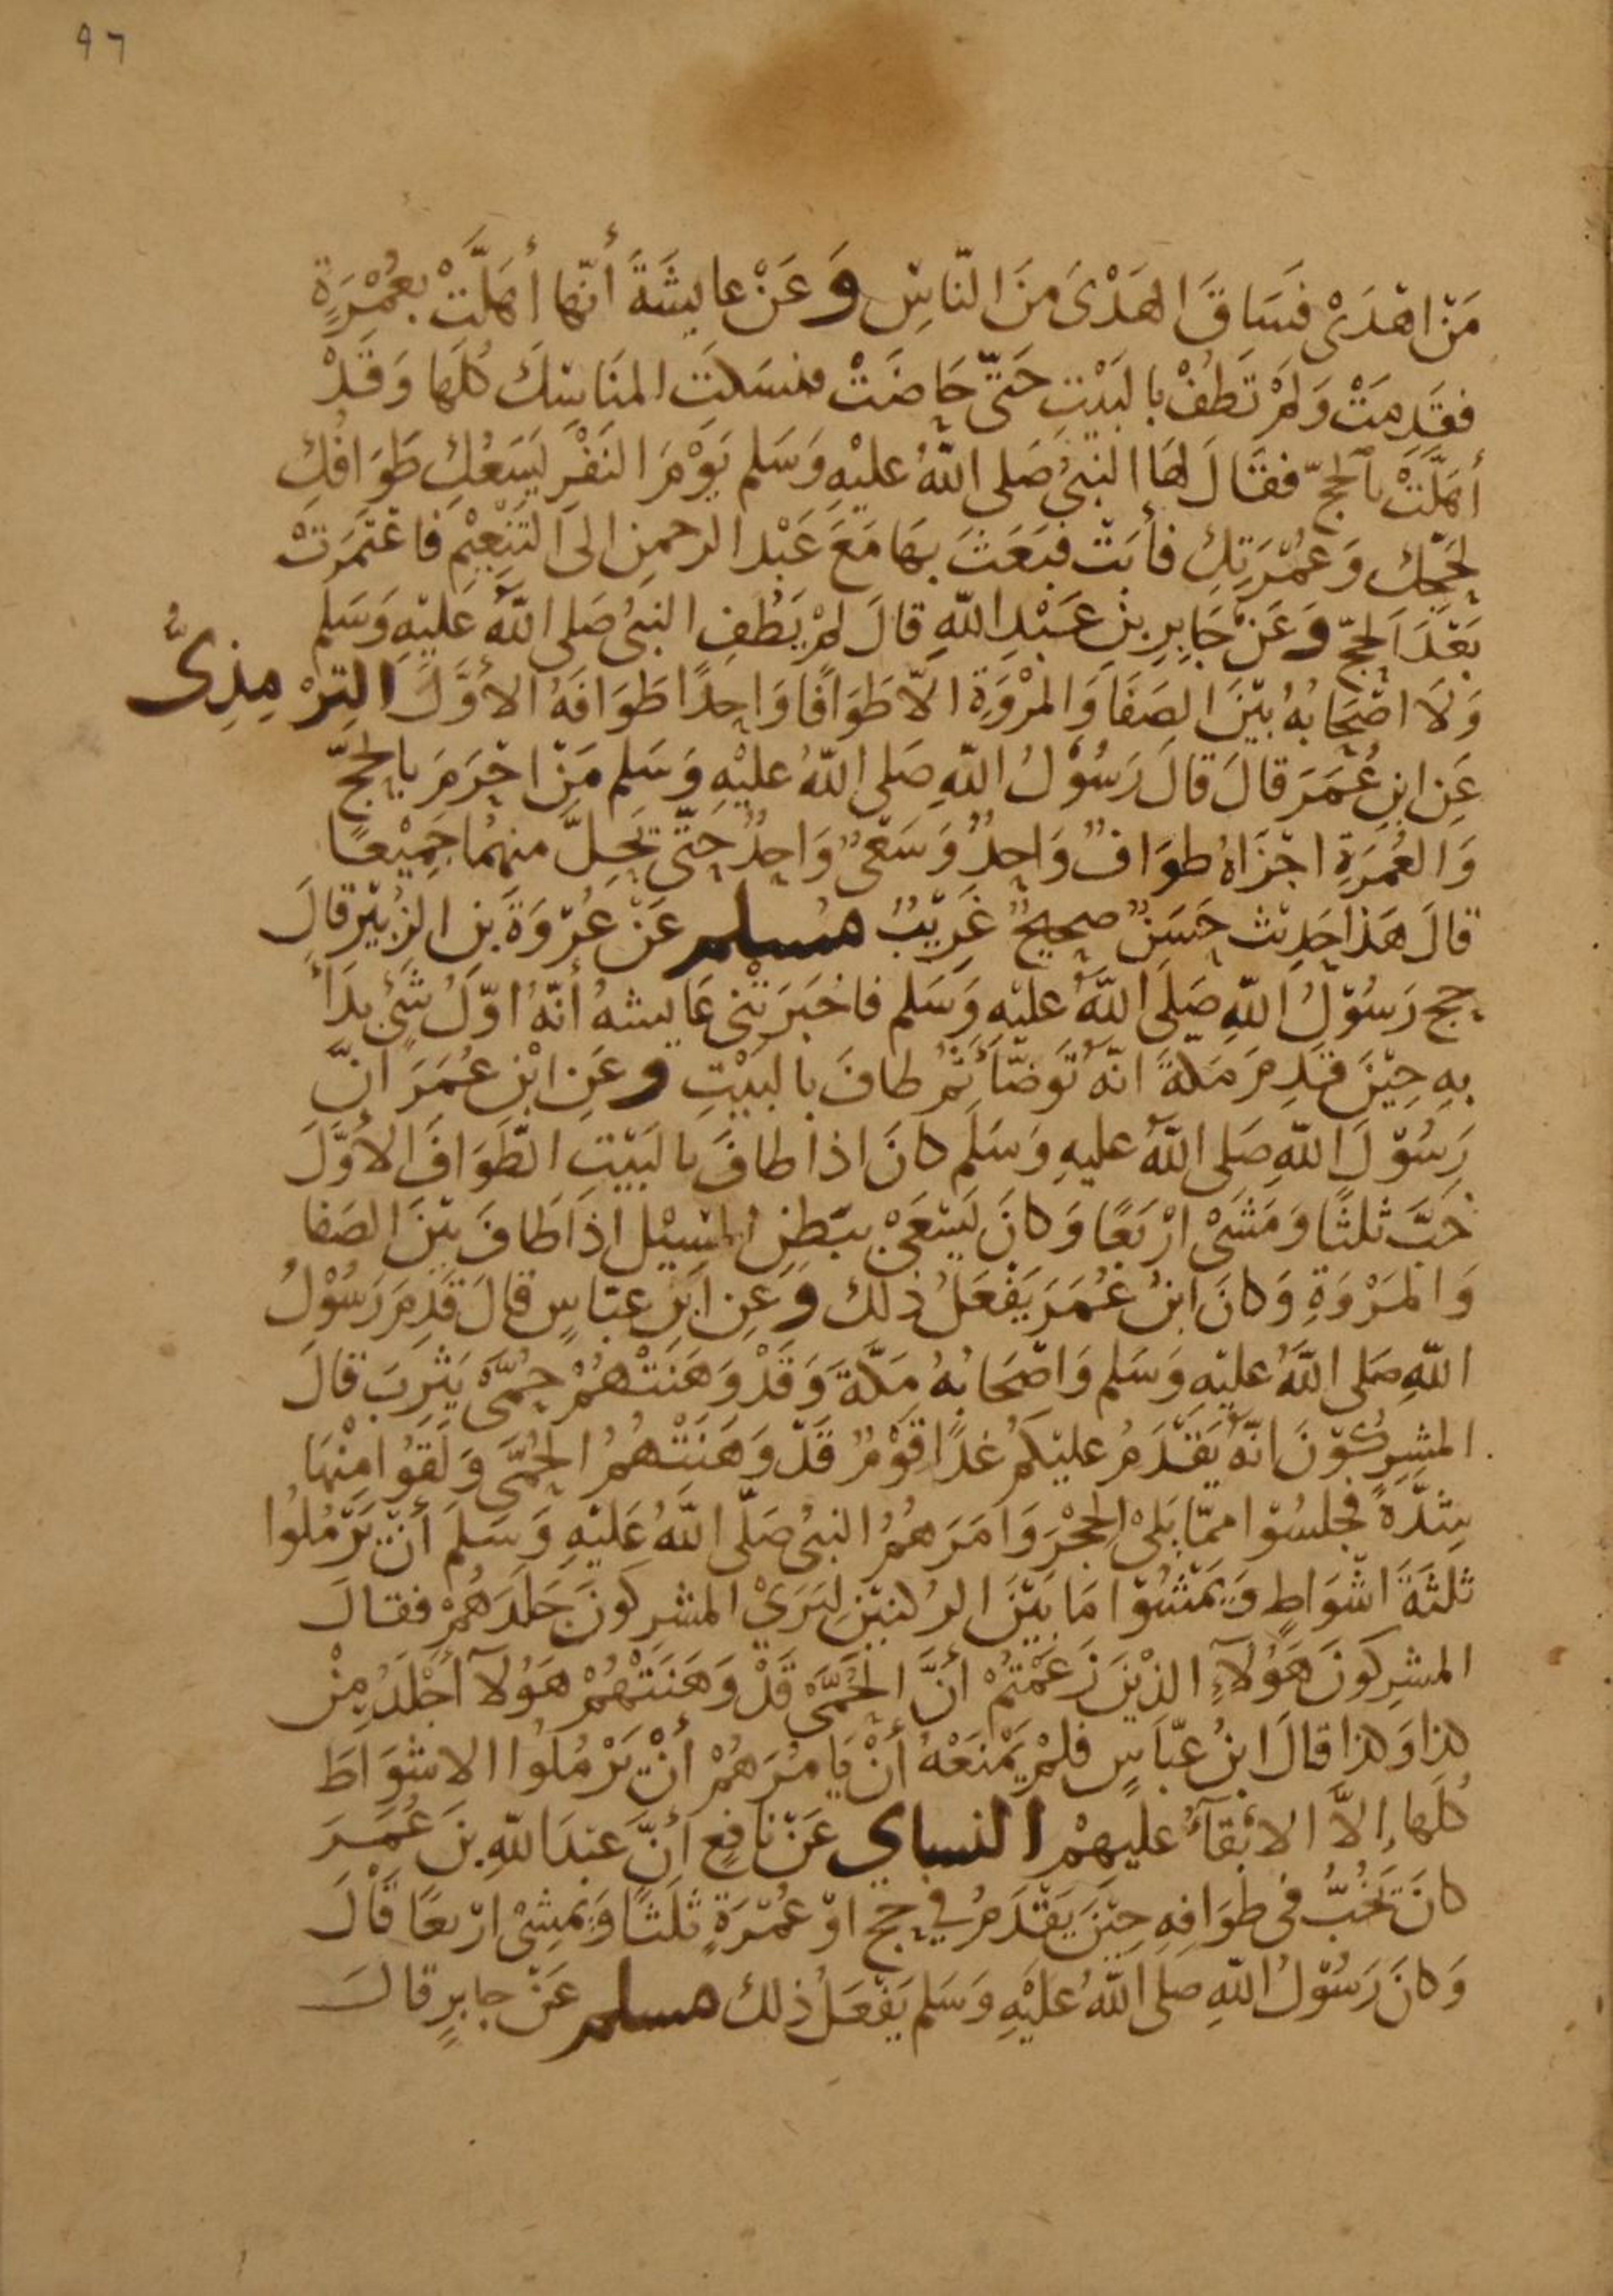 ٩٦
مَنْ اهْدَىْ فَسَاقَ الهَدْىَ مِنَ النّاسِ وَعَنْ عايشَةَ أنّها أهَلَّتْ بِعُمْرَةٍ
فقَدِمَتْ وَلَمْ تَطُفْ بالبَيْتِ حَتّى حَاضَتْ فنسَكَتِ المنَاسِكَ كُلّهَا وَقَدْ
أهَلَّتْ بالحَجِّ فقَالَ لهَا النبىُ صَلى اللّهُ عليْهِ وَسَلم يَوْمَ النَفْرِ يَسَعُكِ طَوَافُكِ
لِحَجّكِ وَعُمْرَتِكِ فأبَتْ فبَعَثَ بهَا مَعَ عَبْدِ الرحمنِ الىَ التَنْعِيْمِ فاعْتَمَرَتْ
بَعْدَ الحَجّ وَعَنْ جَابِرِ بنِ عَبْدِ اللّهِ قالَ لمْ يَطُفِ النبىُ صَلى اللّهُ عَليْهِ وَسَلم
وَلَا اصْحَابُهُ بيْنَ الصَفَا وَالمَرْوَةِ الاّ طَوَافًا وَاحِدًا طَوَافَهُ الاَوَّلَ التِرْمِذِىُّ
عَنِ ابنِ عُمَرَ قالَ قالَ رَسُوْلُ اللّهِ صَلى اللّهُ عليْهِ وَسَلم مَنْ احْرَمَ بالحَجّ
وَالعُمْرَةِ اجْزَاهُ طوَافٌ وَاحِدٌ وَسَعْىٌ وَاحِدٌ حَتّى يَحِلّ منهُما جَمِيْعًا
قالَ هَذا حَدِيْث حَسَنٌ صحِيحٌ غَرِيْبٌ مسلم عَنْ عُرْوَةَ بنِ الزُبَيْرِ قالَ
حج رَسُوْلُ اللّهِ صَلى اللّهُ عليْهِ وَسَلم فاخْبَرَتْنى عَايشهُ أنّهُ اوّلُ شَىْءٍ بدَأ
بهِ حِيْنَ قدِمَ مَكةَ انّهُ تَوَضّأ ثمّ طافَ بالبَيْتِ وعَنِ ابْنِ عُمَرَ انّ
رَسُوْلَ اللّهِ صَلى اللّهُ عليهِ وَسَلم كانَ اذا طافَ بالبَيْتِ الطَّوَافَ الاَوّلَ
خَبَّ ثلثًا وَمَشَىْ ارْبَعًا وَكانَ يَسْعَىْ ببَطنِ المسِيْلِ اذا طَافَ بيْنَ الصَفا
وَالمَرْوَةِ وَكانَ ابنُ عُمَرَ يَفْعَلُ ذلك وَعَنِ ابنِ عبّاسٍ قالَ قدِمَ رَسُوْلُ
اللّهِ صَلى اللّهُ عليْهِ وَسَلم وَاصْحَابُهُ مَكّةَ وَقَدْ وَهَنَتْهُمْ حُمَّى يَثْرِبَ قالَ
المشرِكُوْنَ انّهُ يَقدَمُ عليْكمْ غدًا قوْمٌ قَدْ وَهَنَتْهُمُ الحُمَّى وَلَقُوا مِنْهَا
شِدَّةً فجلسُوْا ممّا يَلىْ الحِجْرَ وَامَرَهُمُ النبىُ صَلّى اللّهُ عَليْهِ وَسَلمَ أنْ يَرْمُلُوا
ثلثَةَ اشْوَاطٍ وَيَمْشُوْا مَا بَيْنَ الرُكنيْنِ لِيَرَىْ المشرِكونَ جَلَدَهُمْ فقالَ
المشرِكونَ هَؤلآءِ الذيْنَ زَعَمْتمْ أنَّ الحُمَّى قَدْ وَهَنَتْهُمْ هَؤلآ أجْلَدُ مِنْ
كذا وَكذا قالَ ابنُ عبّاسٍ فلمْ يَمْنَعْهُ أنْ يَامُرَهُمْ أنْ يَرْمُلُوا الاشْوَاطَ
كُلّها إلاّ الابْقآءُ عليهمْ النساي عَنْ نَافِعٍ أنّ عبْدَ اللّهِ بنَ عُمَرَ
كانَ يَخُبُّ فى طوَافِهِ حِيْنَ يَقْدَمُ فِي حجٍ اوْ عُمْرَةٍ ثلَثًا وَيَمشِىْ ارْبعًا قَالَ
وَكانَ رَسُوْلُ اللّهِ صَلى اللّهُ عَليْهِ وَسَلم يَفْعَلُ ذلك مسلم عَنْ جابرٍ قالَ